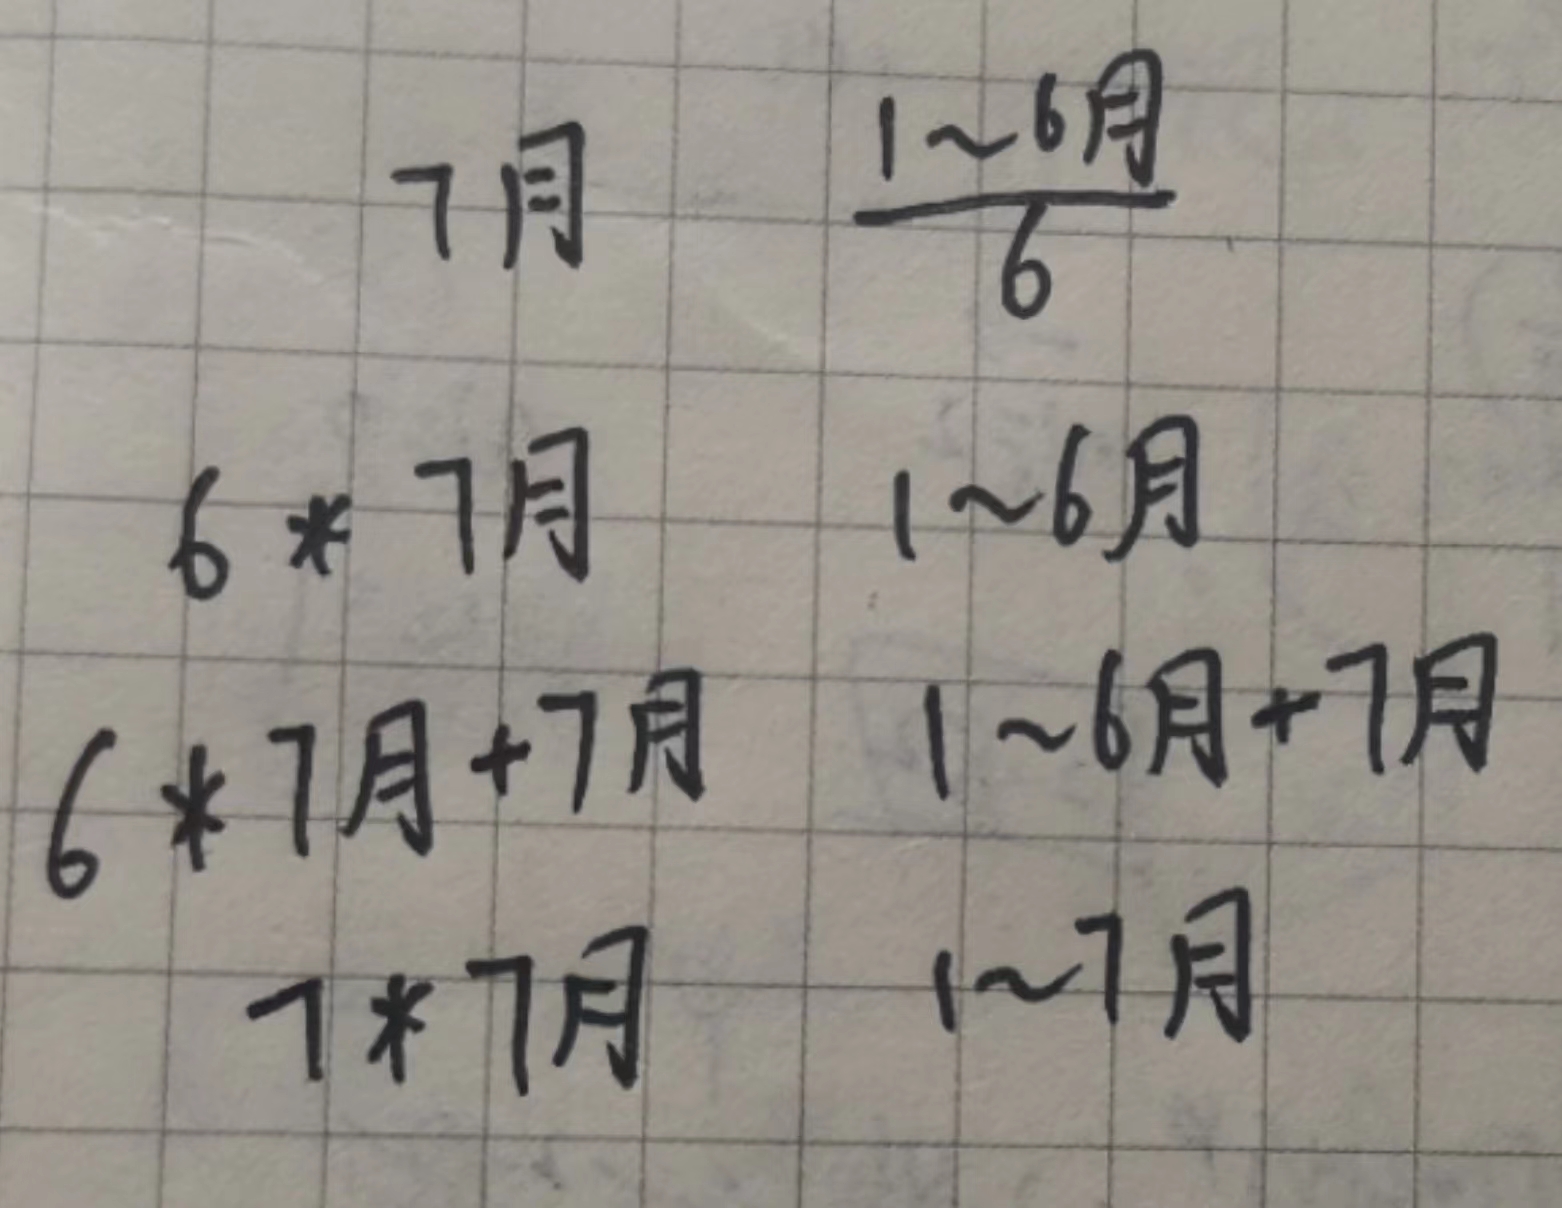 7月 1~6月
6
6*7月 1~6月
6*7月+7月 1~6月+7月
7*7月 1~7月